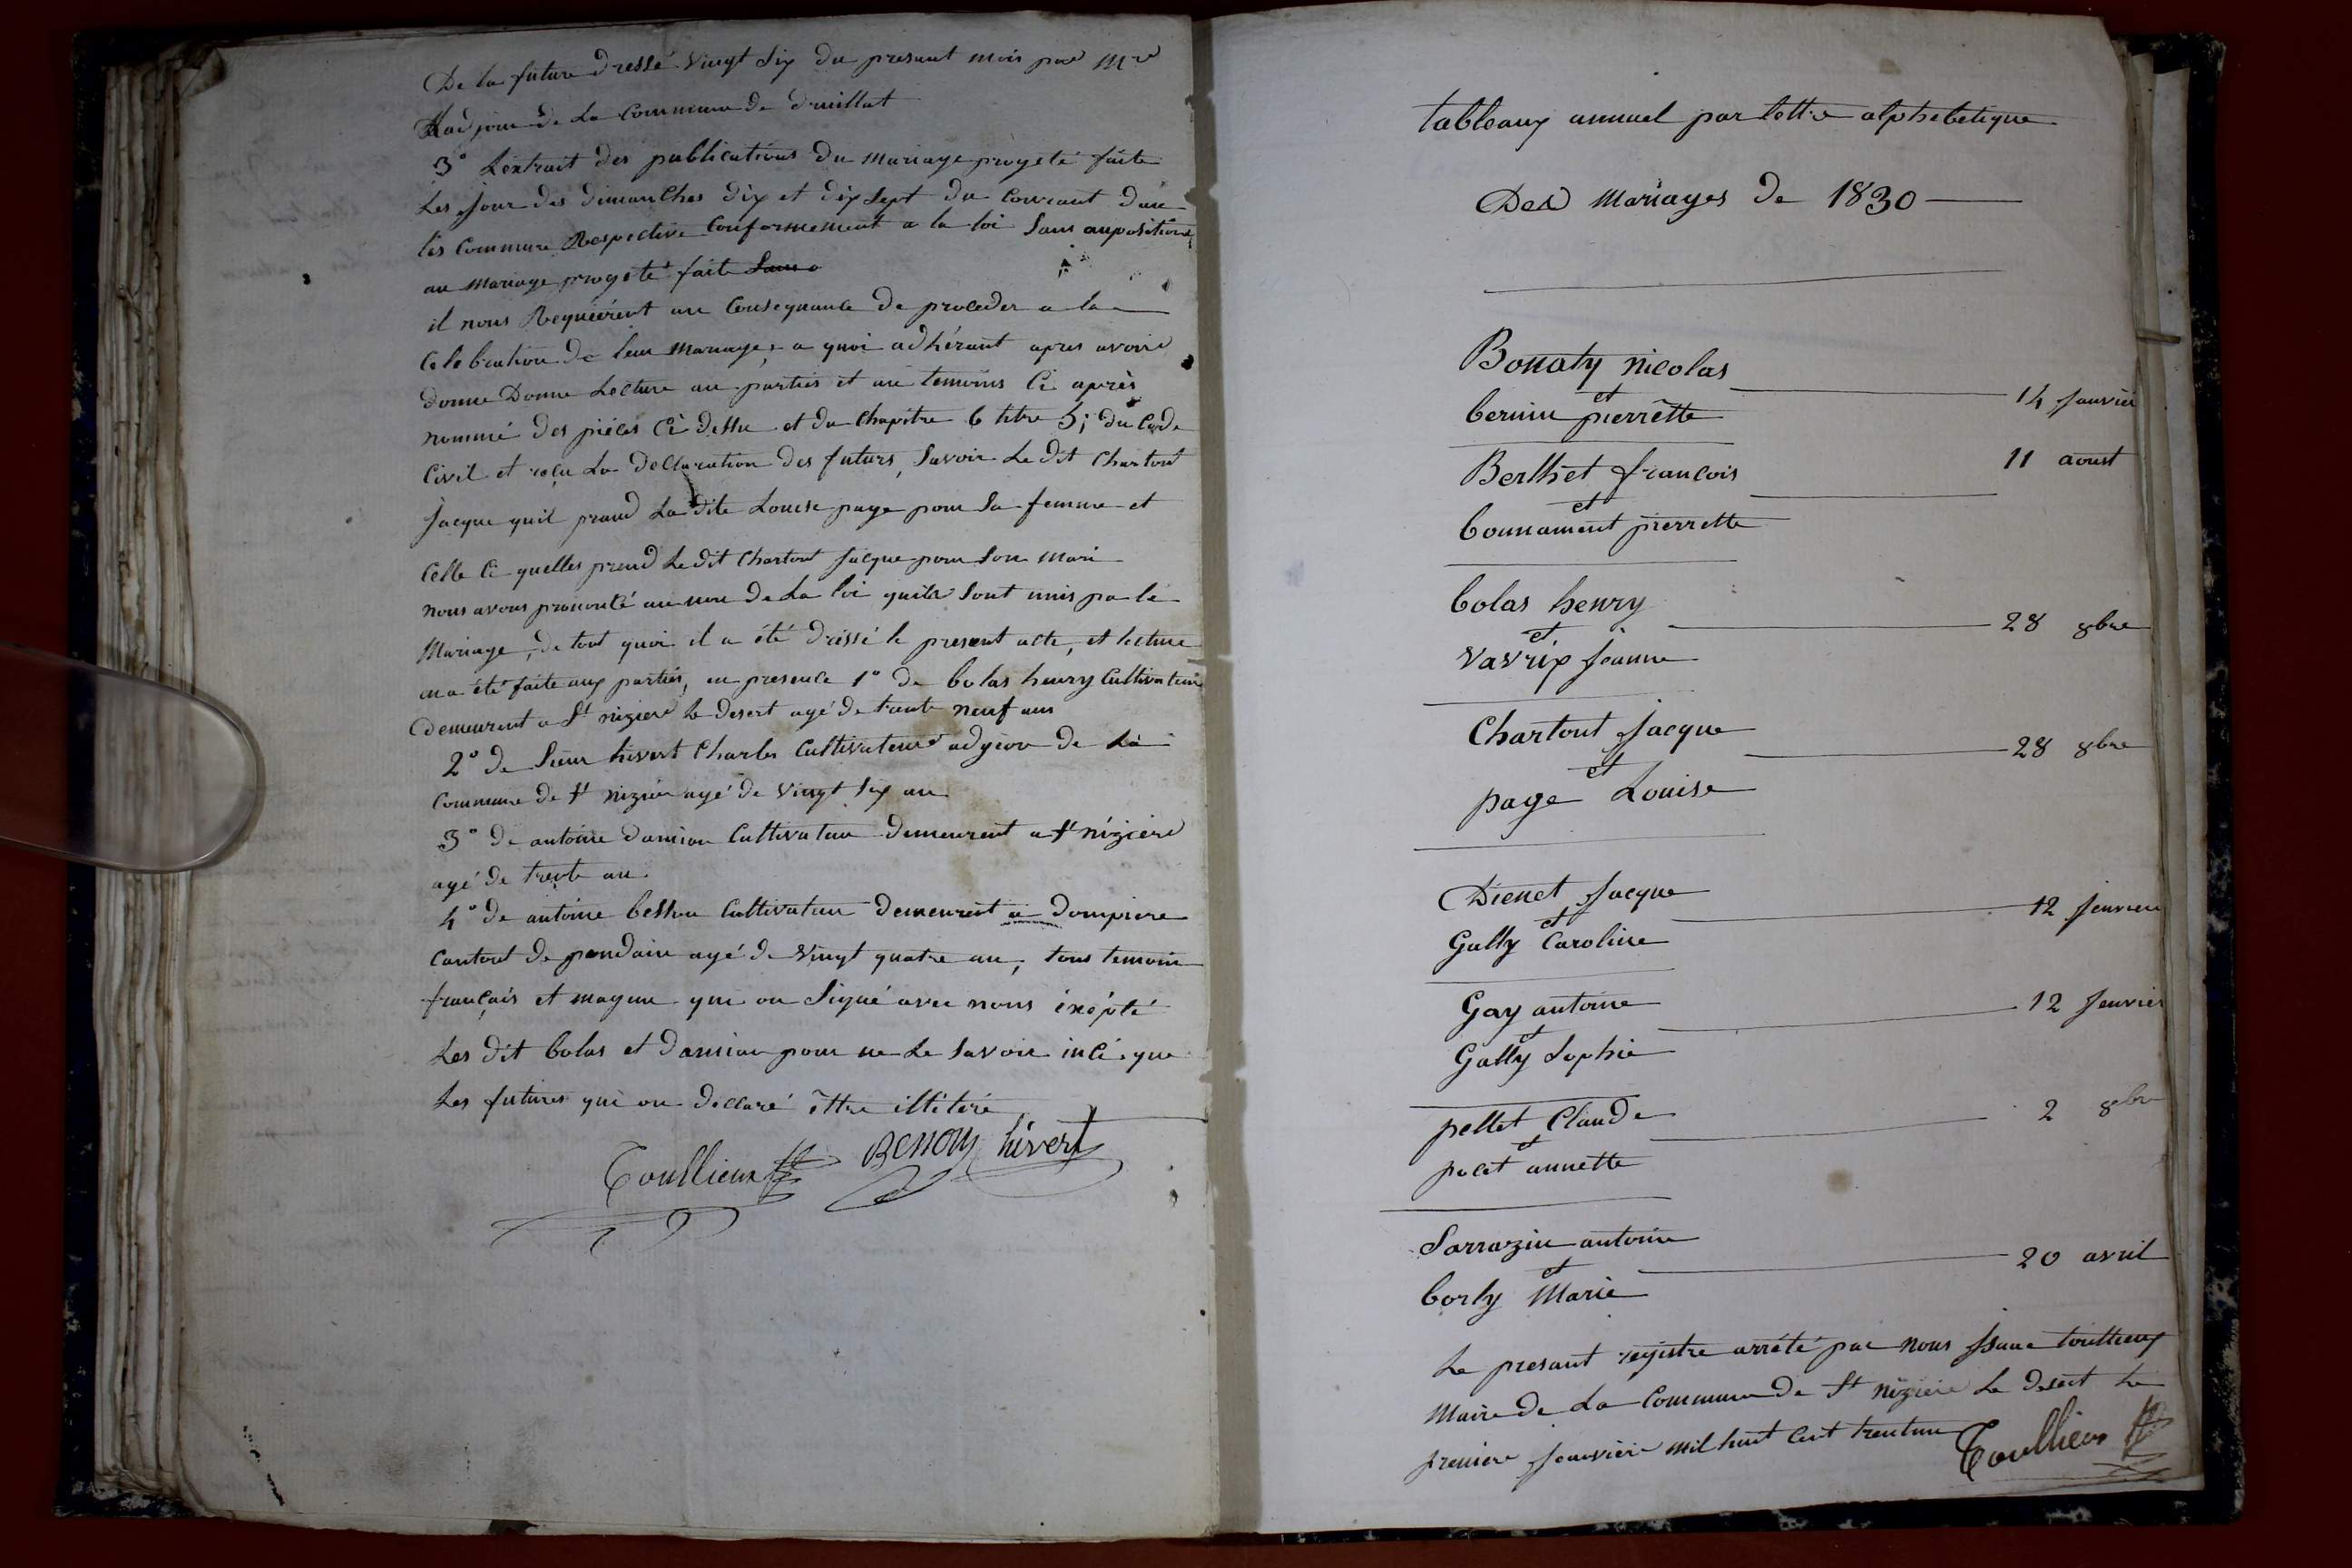 De la future dressé vingt six du presant mois par Mr
Ladjoin de La Commune de druillat
3° Lextrait des publications du mariage progeté faite
Les jour des dimanches dix et dix sept du Courant dan
les Commune Respective Conformement a la loi Sans auposition
au mariage progeté faite Sans
il nous Requiérent au Consequance de proceder a la
Celebration de leur mariage, a quoi adhérant apres avoir
donne Donne Lecture au parties et au temoins Ci après
nommé des pièces Ci dessu et du Chapitre 6 titre 5; du Code
Civil et reçu La declaration des futurs, Savoir Le dit Chartout
Jacque quil prand La dite Louise page pour Sa femme et
Celle Ci quelles prend Le dit Chartout Jacque pour Son mari
nous avons prononcé au nom de La loi quils Sont unis par le
Mariage, de tout quoi il a été dressé le present acte, et lecture
en a été faite aux parties, en presence 1° de Colas henry Cultivateur
demeurent a St nizier Le desert agé de trente neuf ans
2° de Sieur hivert Charles Cultivateur adjoin de La
Commune de St nizier agé de vingt six an
3° de antoine damian Cultivateur demeurent a St nizier
agé de trente an.
4° de antoine besson Cultivateur demeurent a dompiere
Cantont de pondain agé de vingt quatre an, tous temoin
français et mageur qui on Signé avec nous exépté
Les dit Colas et damian pour ne Le Savoir insi que
Les futures qui on declaré ettre illitéré
Toullieux Benony hivert
tableaux annuel par lettre alphebetique
Des Mariages de 1830
Bonaty nicolas
et
14 Janvier
pierrette
Berthet françois
11 aoust
et
Counament pierrette
Colas henry
et
28 8bre
Vavrix Jeanne
Chartout Jacque
et
28 8bre
page Louise
Dienet Jacque
et
12 Jenvier
Gally Caroline
Gay antoine
et
12 Jenvier
Gally Sophie
pellet Claude
et
2 8bre
polet annette
Sarrazin antoine
et
20 avril
Corly Marie
Le presant registre arrété par nous toullieux
Maire de La Commune de St nizier Le desert Le
premier Janvier mil huit Cent trentun
Toullieux